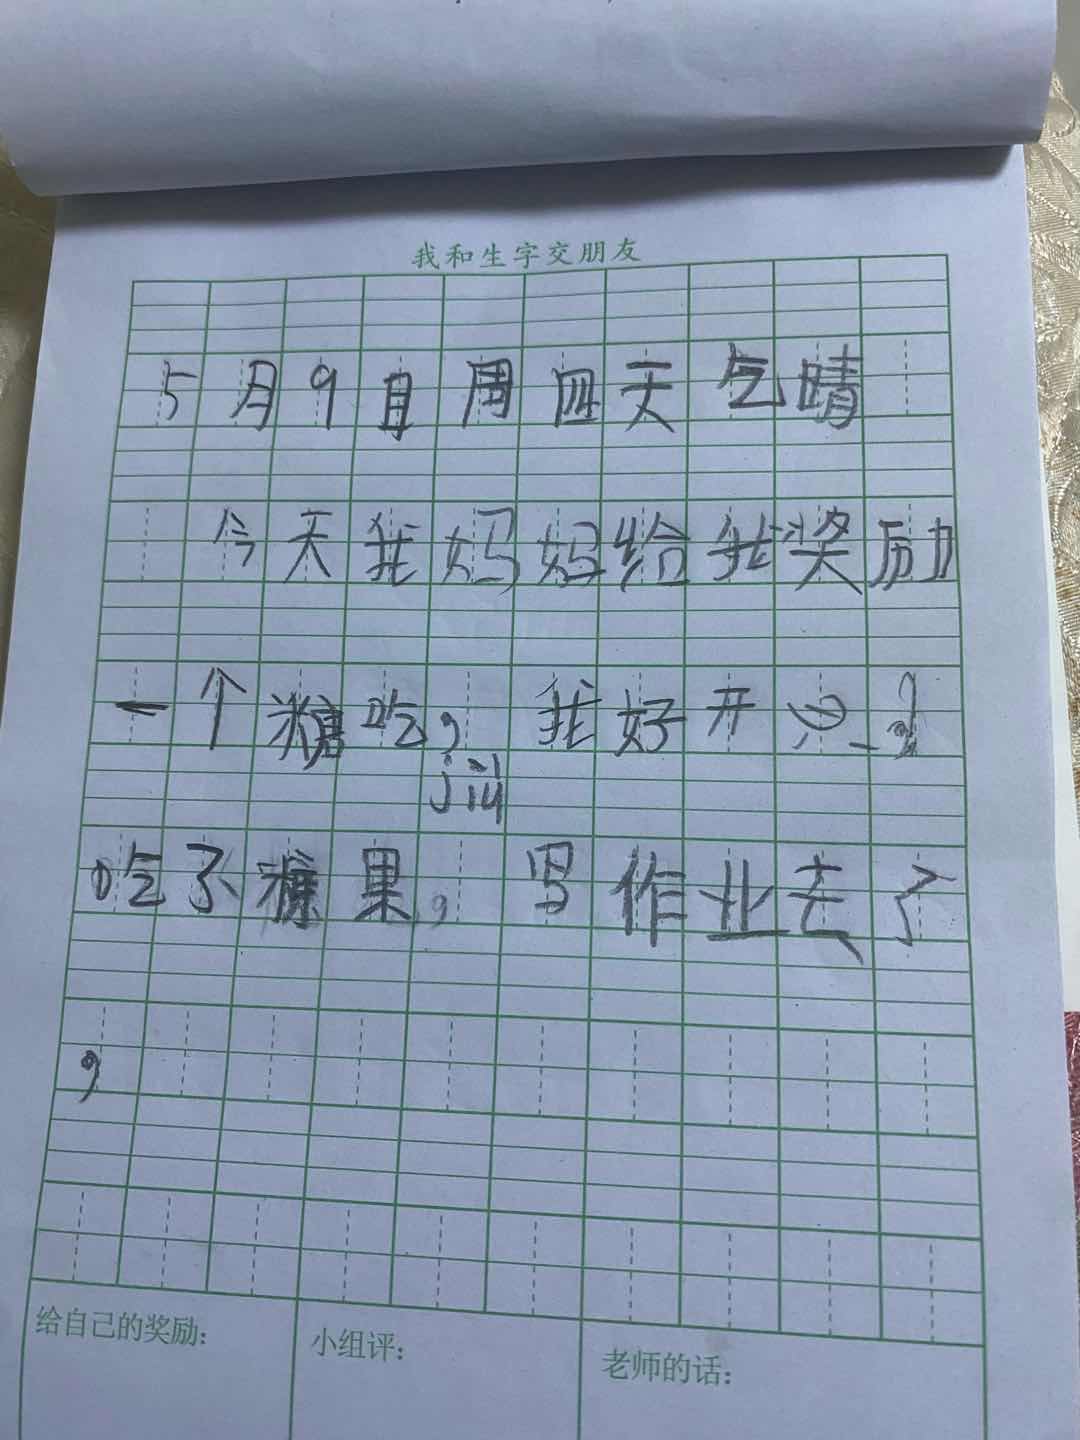 我和生字交朋友
5月9日周四天气晴
今天我妈妈给我奖励
一个糖吃，我好开心！
jiù
吃了糖果，写作业去了
，
给自己的奖励：
小组评：
老师的话：